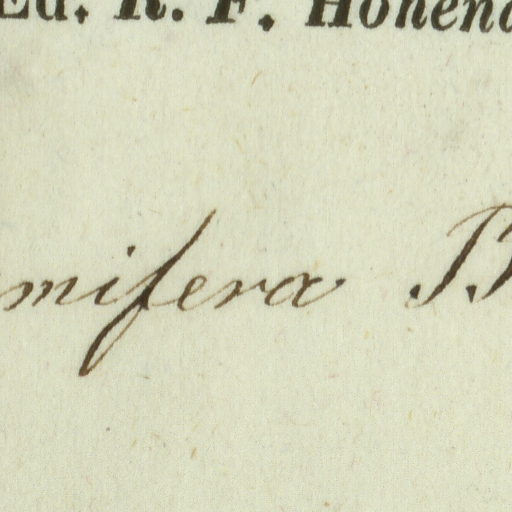 Ed. R. F. Hohena
mifera B